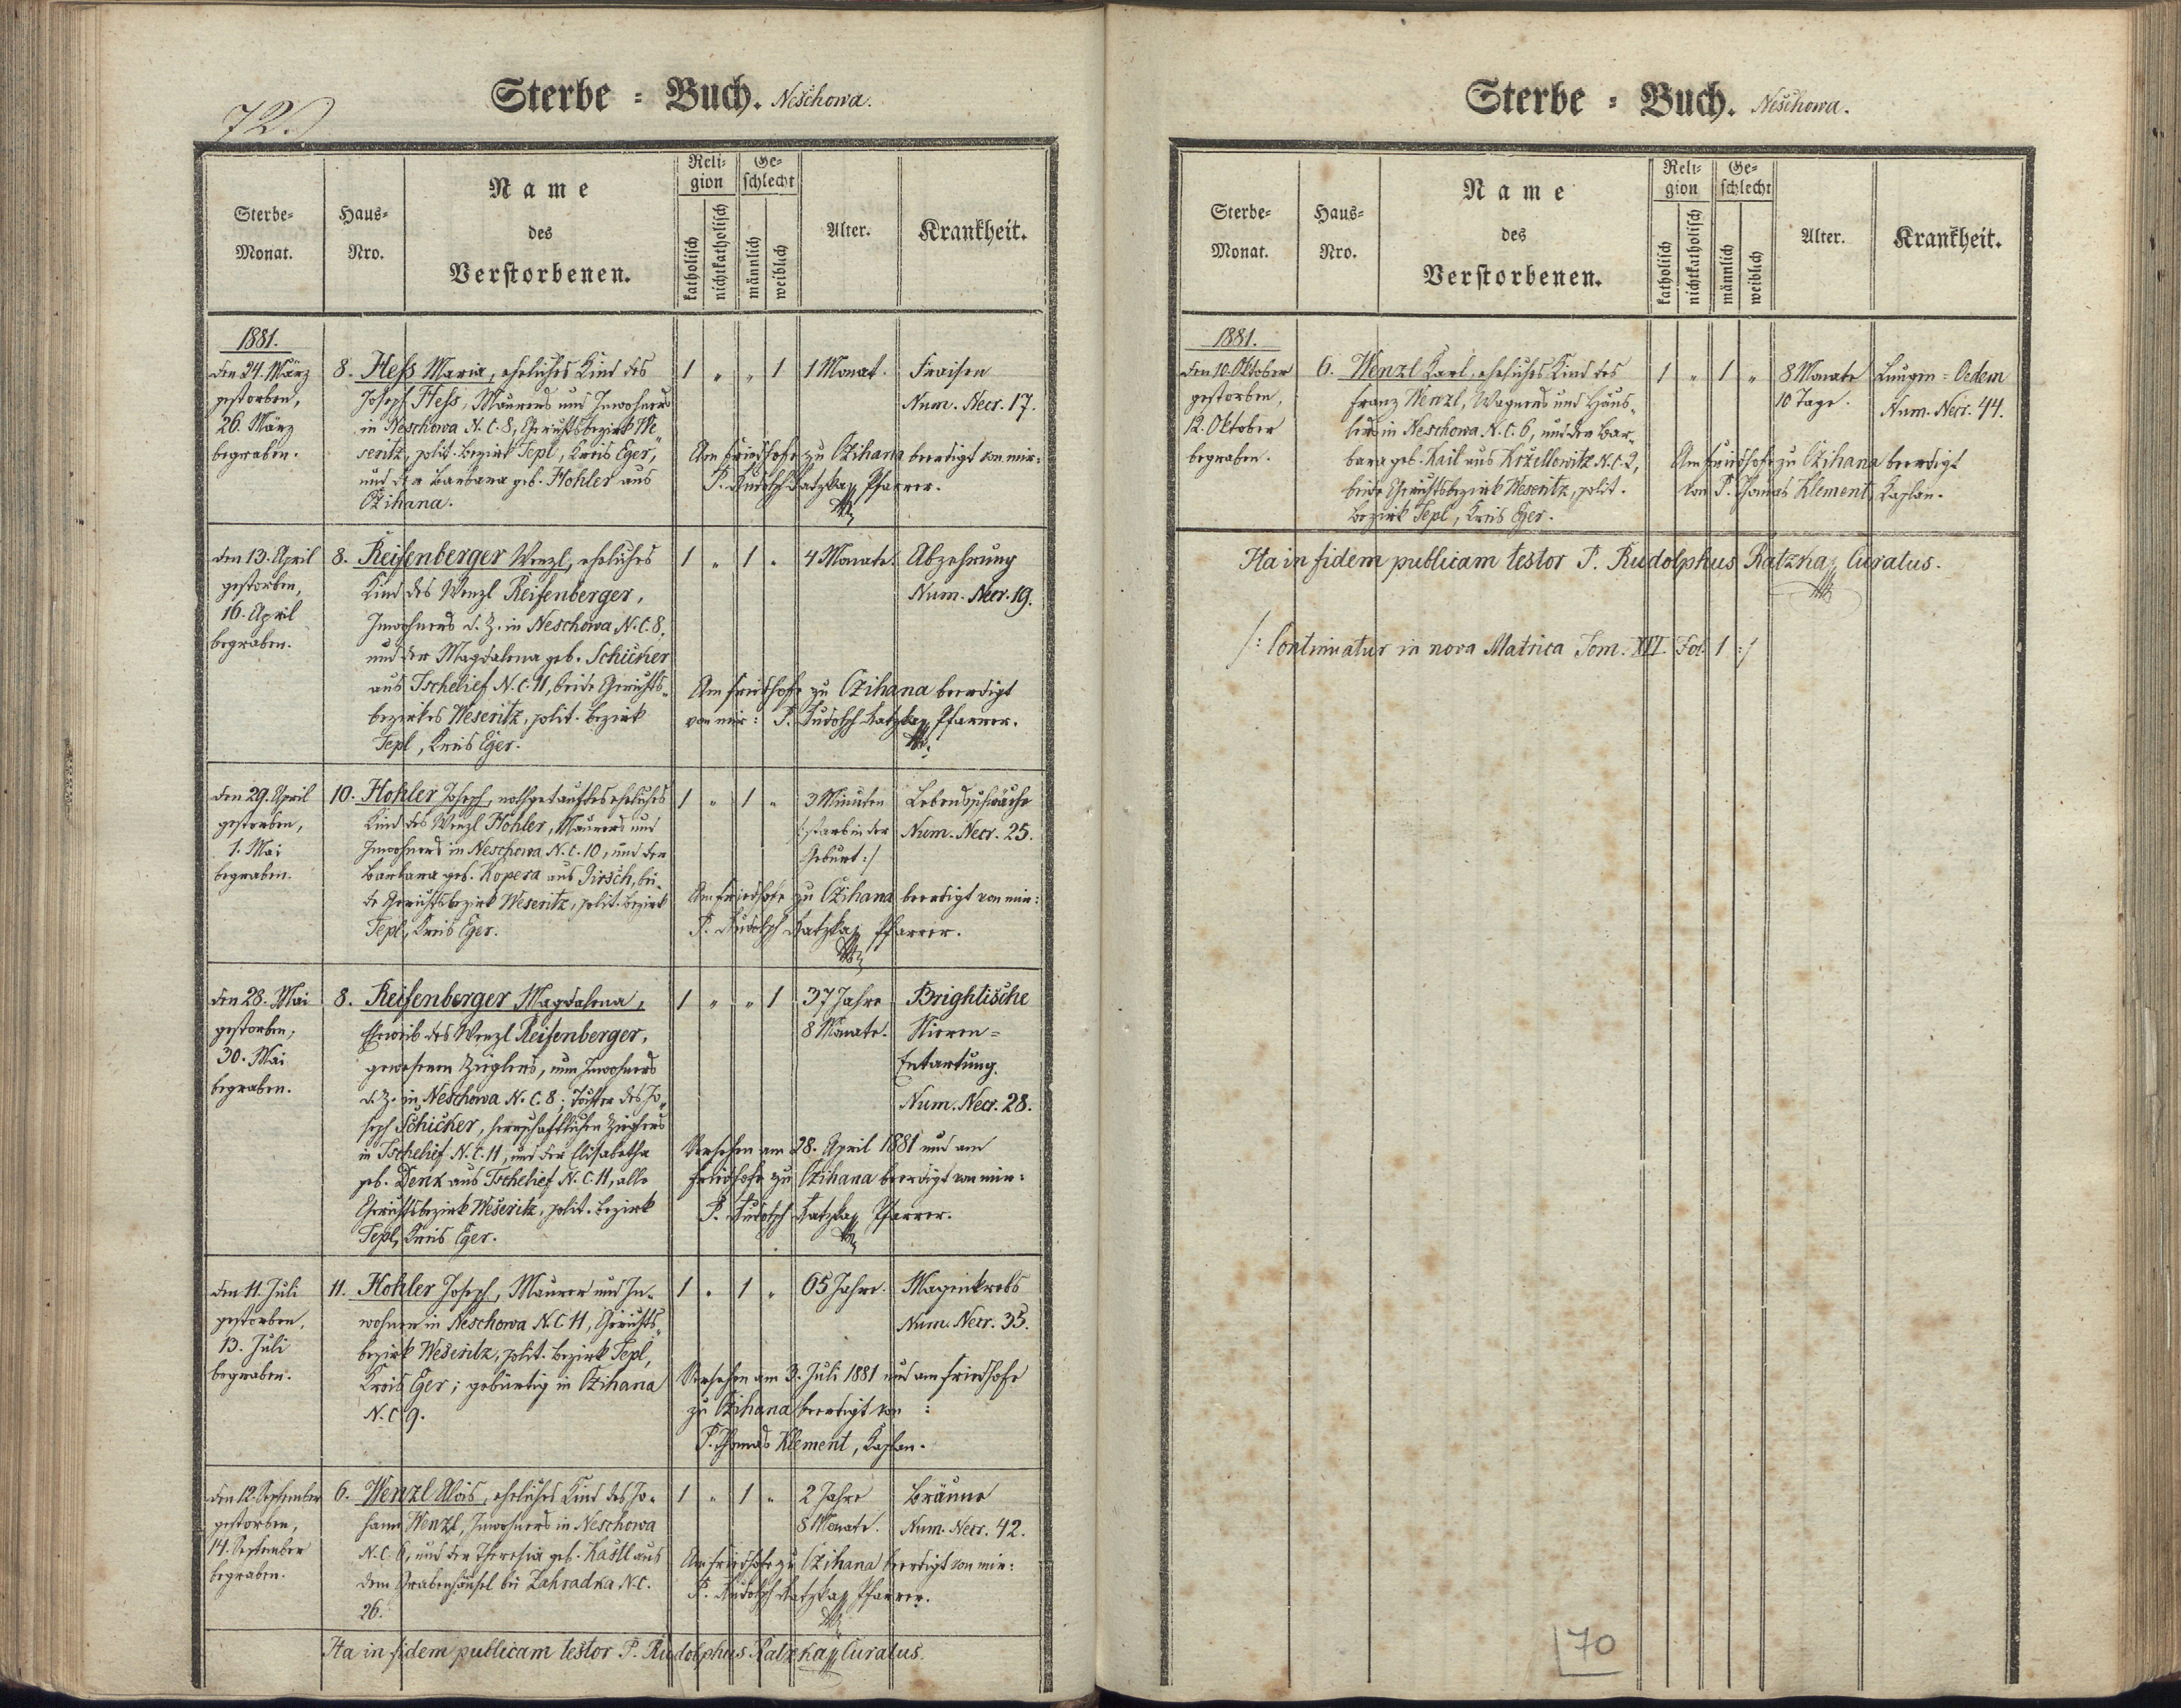 72.
Sterbe = Buch. Neschowa.
Sterbe-Monat.
Haus-Nro.
Name des Verstorbenen.
Religion
katholisch
nichtkatholisch
Geschlecht
männlich
weiblich
Alter.
Krankheit.
1881.
den 24. März
gestorben,
26. März
begraben.
8.
Hess Maria, eheliches Kind des
Joseph Hess, Maurers und Inwohners
in Neschowa N.C. 8, Gerichtsbezirk We„
seritz, polit. Bezirk Tepl, Kreis Eger,
und der Barbara geb. Hohler aus
Czihana.
1 „ „ 1
1 Monat.
Fraisen
Num. Necr. 17.
Am Friedhofe zu Czihana beerdigt von mir:
P. Rudolph Ratzka, Pfarrer.
den 13. April
gestorben,
16. April
begraben.
8.
Reifenberger Wenzl, eheliches
Kind des Wenzl Reifenberger,
Inwohners d. Z. in Neschowa N.C. 8,
und der Magdalena geb. Schicker
aus Tschelief N.C. 11, beide Gerichts„
bezirkes Weseritz, polit. Bezirk
Tepl, Kreis Eger.
1 „ 1 „
4 Monate.
Abzehrung
Num. Necr. 19.
Am Friedhofe zu Czihana beerdigt
von mir: P. Rudolph Ratzka, Pfarrer.
den 29. April
gestorben,
1. Mai
begraben.
10.
Hohler Joseph, nothgetauftes eheliches
Kind des Wenzl Hohler, Maurers und
Inwohners in Neschowa N.C. 10, und der
Barbara geb. Kopera aus Girsch, bei„
de Gerichtsbezirk Weseritz, polit. Bezirk
Tepl, Kreis Eger.
1 „ 1 „
3 Minuten
/: starb in der
Geburt :/
Lebensschwäche
Num. Necr. 25.
Am Friedhofe zu Czihana beerdigt von mir:
P. Rudolph Ratzka, Pfarrer.
den 28. Mai
gestorben,
30. Mai
begraben.
8.
Reifenberger Magdalena,
Eheweib des Wenzl Reifenberger,
gewesenen Zieglers, nun Inwohners
d. Z. in Neschowa N.C. 8; Tochter des Jo„
seph Schicker, herrschaftlichen Zieglers
in Tschelief N.C. 11, und der Elisabetha
geb. Denk aus Tschelief N.C. 11, alle
Gerichtsbezirk Weseritz, polit. Bezirk
Tepl, Kreis Eger.
1 „ „ 1
37 Jahre
8 Monate.
Brightische
Nieren=
Entartung.
Num. Necr. 28.
Versehen am 28. April 1881 und am
Friedhofe zu Czihana beerdigt von mir:
P. Rudolph Ratzka, Pfarrer.
den 11. Juli
gestorben,
13. Juli
begraben.
11.
Hohler Joseph, Maurer und In„
wohner in Neschowa N.C. 11, Gerichts„
bezirk Weseritz, polit. Bezirk Tepl,
Kreis Eger; gebürtig in Czihana
N.C. 9.
1 „ 1 „
65 Jahre.
Magenkrebs
Num. Necr. 35.
Versehen am 3. Juli 1881 und am Friedhofe
zu Czihana beerdigt von :
P. Thomas Klement, Kaplan.
den 12. September
gestorben,
14. September
begraben.
6.
Wenzl Alois, eheliches Kind des Jo„
hann Wenzl, Inwohners in Neschowa
N.C. 6, und der Theresia geb. Kastl aus
dem Grabenhäusel bei Zahradka N.C.
26.
1 „ 1 „
2 Jahre
8 Monate.
Bräune
Num. Necr. 42.
Am Friedhofe zu Czihana beerdigt von mir:
P. Rudolph Ratzka, Pfarrer.
Ita in fidem publicam testor P. Rudolphus Ratzka, Curatus.
Sterbe = Buch. Neschowa.
Sterbe-Monat.
Haus-Nro.
Name des Verstorbenen.
Religion
katholisch
nichtkatholisch
Geschlecht
männlich
weiblich
Alter.
Krankheit.
1881.
den 10. Oktober
gestorben,
12. Oktober
begraben.
6.
Wenzl Karl, eheliches Kind des
Franz Wenzl, Wagners und Häus„
lers in Neschowa N.C. 6, und der Bar„
bara geb. Kail aus Kržellowitz N.C. 2,
beide Gerichtsbezirk Weseritz, polit.
Bezirk Tepl, Kreis Eger.
1 „ 1 „
8 Monate
10 Tage.
Lungen = Oedem
Num. Necr. 44.
Am Friedhofe zu Czihana beerdigt
von P. Thomas Klement, Kaplan.
Ita in fidem publicam testor P. Rudolphus Ratzka, Curatus.
/: Continuatur in nova Matrica Tom. XVI. Fol. 1 :/
70